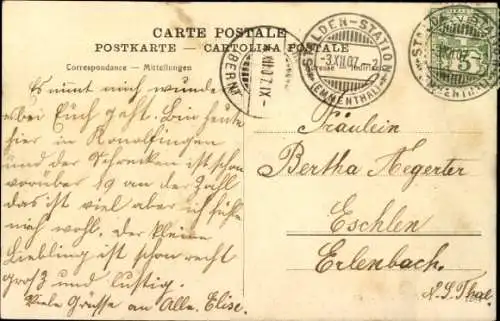 CARTE POSTALE
POSTKARTE – CARTOLINA POSTALE
Correspondance – Mitteilungen
BERN
XII.07.IX-
STALDEN-STATION
-3.XII.07.-2
(EMMENTHAL)
5
Es nimt mich wunder
wie bei Euch geht. Bin heute
hier in Konolfingen
und der Schrecken ist schon
vorüber 19 an der Zahl
das ist viel aber ich fühle
mich wohl. Der kleine
Liebling ist schon recht
groß und lustig.
Viele Grüsse an Alle. Elise.
Fräulein
Bertha Aegerter
Eschlen
Erlenbach.
N.S.Thal.